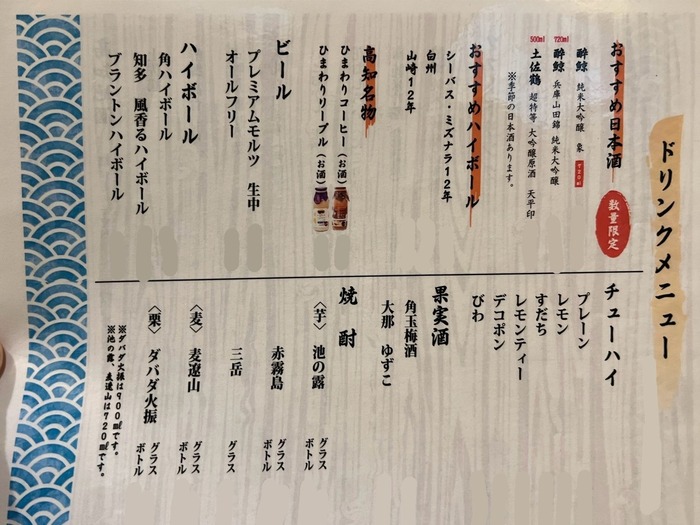 ドリンクメニュー
おすすめ日本酒
数量限定
酔鯨 純米大吟醸 象
720ml
酔鯨 兵庫山田錦 純米大吟醸
500ml
土佐鶴 超特等 大吟醸原酒 天平印
※季節の日本酒あります。
おすすめハイボール
シーバス・ミズナラ12年
白州
山崎12年
高知名物
ひまわりコーヒー(お酒)
ひまわりリープル(お酒)
ビール
プレミアムモルツ 生中
オールフリー
ハイボール
角ハイボール
知多 風香るハイボール
ブラントンハイボール
チューハイ
プレーン
レモン
すだち
レモンティー
デコポン
びわ
果実酒
角玉梅酒
大那 ゆずこ
焼酎
〈芋〉 池の露 グラス
ボトル
赤霧島 グラス
ボトル
三岳 グラス
〈麦〉 麦遼山 グラス
ボトル
〈栗〉 ダバダ火振 グラス
ボトル
※ダバダ火振は900mlです。
※池の露、麦遼山は720mlです。